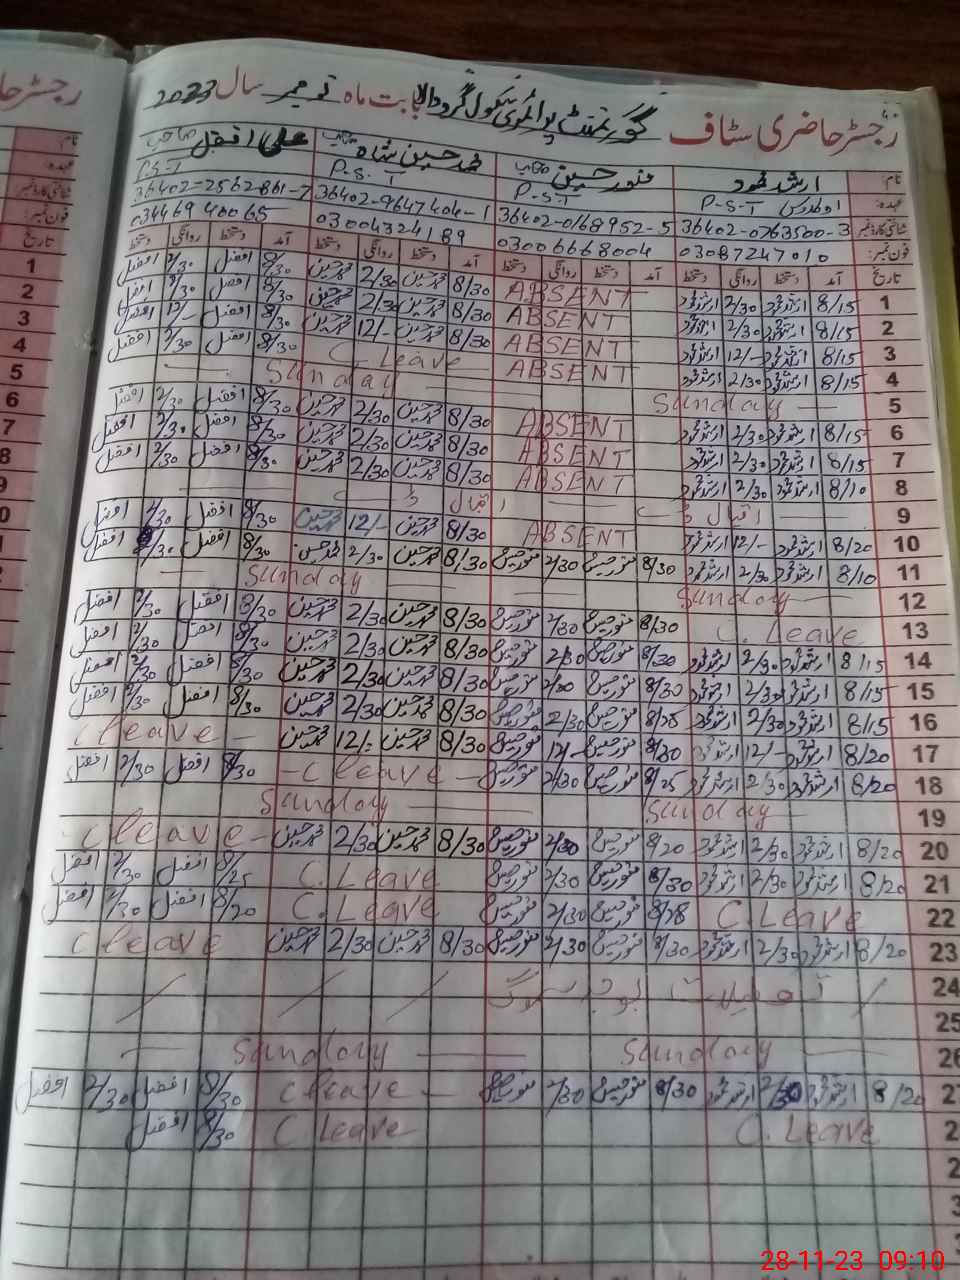 رجسٹر حاضری سٹاف گورنمنٹ پرائمری سکول بابت ماہ نومبر سال 2023
نام: ارشد محمود منور حسین صاحب محمد حسین شاہ صاحب علی افضل صاحب
عہدہ: P-S-T P.S.T P.S.T P.S-T
شناختی کارڈ نمبر: 36402-0763500-3 36402-0168952-5 36402-9647404-1 36402-2562861-7
فون نمبر: 03087247010 03006668004 03004324189 03446940065
تاریخ آمد دستخط روانگی دستخط آمد دستخط روانگی دستخط آمد دستخط روانگی دستخط آمد دستخط روانگی دستخط
1 8/15 ارشد محمود 2/30 ارشد محمود ABSENT 8/30 محمد حسین 2/30 محمد حسین 8/30 افضل 2/30 افضل
2 8/15 ارشد محمود 2/30 ارشد محمود ABSENT 8/30 محمد حسین 2/30 محمد حسین 8/30 افضل 2/30 افضل
3 8/15 ارشد محمود 12/- ارشد محمود ABSENT 8/30 محمد حسین 12/- محمد حسین 8/30 افضل 12/- افضل
4 8/15 ارشد محمود 2/30 ارشد محمود ABSENT C. Leave 8/30 افضل 2/30 افضل
5 Sunday Sunday
6 8/15 ارشد محمود 2/30 ارشد محمود ABSENT 8/30 محمد حسین 2/30 محمد حسین 8/30 افضل 2/30 افضل
7 8/15 ارشد محمود 2/30 ارشد محمود ABSENT 8/30 محمد حسین 2/30 محمد حسین 8/30 افضل 2/30 افضل
8 8/10 ارشد محمود 2/30 ارشد محمود ABSENT 8/30 محمد حسین 2/30 محمد حسین 8/30 افضل 2/30 افضل
9 اقبال ڈے اقبال ڈے
10 8/20 ارشد محمود 12/- ارشد محمود ABSENT 8/30 محمد حسین 12/- محمد حسین 8/30 افضل 2/30 افضل
11 8/10 ارشد محمود 2/30 ارشد محمود 8/30 منور حسین 2/30 منور حسین 8/30 محمد حسین 2/30 محمد حسین 8/30 افضل 2/30 افضل
12 Sunday Sunday
13 C. Leave 8/30 منور حسین 2/30 منور حسین 8/30 محمد حسین 2/30 محمد حسین 8/30 افضل 2/30 افضل
14 8/15 ارشد محمود 2/30 ارشد محمود 8/30 منور حسین 2/30 منور حسین 8/30 محمد حسین 2/30 محمد حسین 8/30 افضل 2/30 افضل
15 8/15 ارشد محمود 2/30 ارشد محمود 8/30 منور حسین 2/30 منور حسین 8/30 محمد حسین 2/30 محمد حسین 8/30 افضل 2/30 افضل
16 8/15 ارشد محمود 2/30 ارشد محمود منور حسین 2/30 منور حسین 8/30 محمد حسین 2/30 محمد حسین 8/30 افضل 2/30 افضل
17 8/20 ارشد محمود 12/- ارشد محمود منور حسین 12/- منور حسین 8/30 محمد حسین 12/- محمد حسین C leave
18 8/20 ارشد محمود 2/30 ارشد محمود 8/25 منور حسین 2/30 منور حسین C leave 8/30 افضل 2/30 افضل
19 Sunday Sunday
20 8/20 ارشد محمود 2/30 ارشد محمود 8/20 منور حسین 2/30 منور حسین 8/30 محمد حسین 2/30 محمد حسین C leave
21 8/20 ارشد محمود 2/30 ارشد محمود 8/30 منور حسین 2/30 منور حسین C. Leave 8/25 افضل 2/30 افضل
22 C. Leave منور حسین 2/30 منور حسین C. Leave 8/20 افضل 2/30 افضل
23 8/20 ارشد محمود 2/30 ارشد محمود 8/30 منور حسین 2/30 منور حسین 8/30 محمد حسین 2/30 محمد حسین C leave
24 تعطیلات بوجہ سموگ
25
26 Sunday Sunday
27 8/20 ارشد محمود 2/30 ارشد محمود 8/30 منور حسین 2/30 منور حسین C leave 8/30 افضل 2/30 افضل
2 C. Leave C Leave 8/30 افضل
2
3
28-11-23 09:10